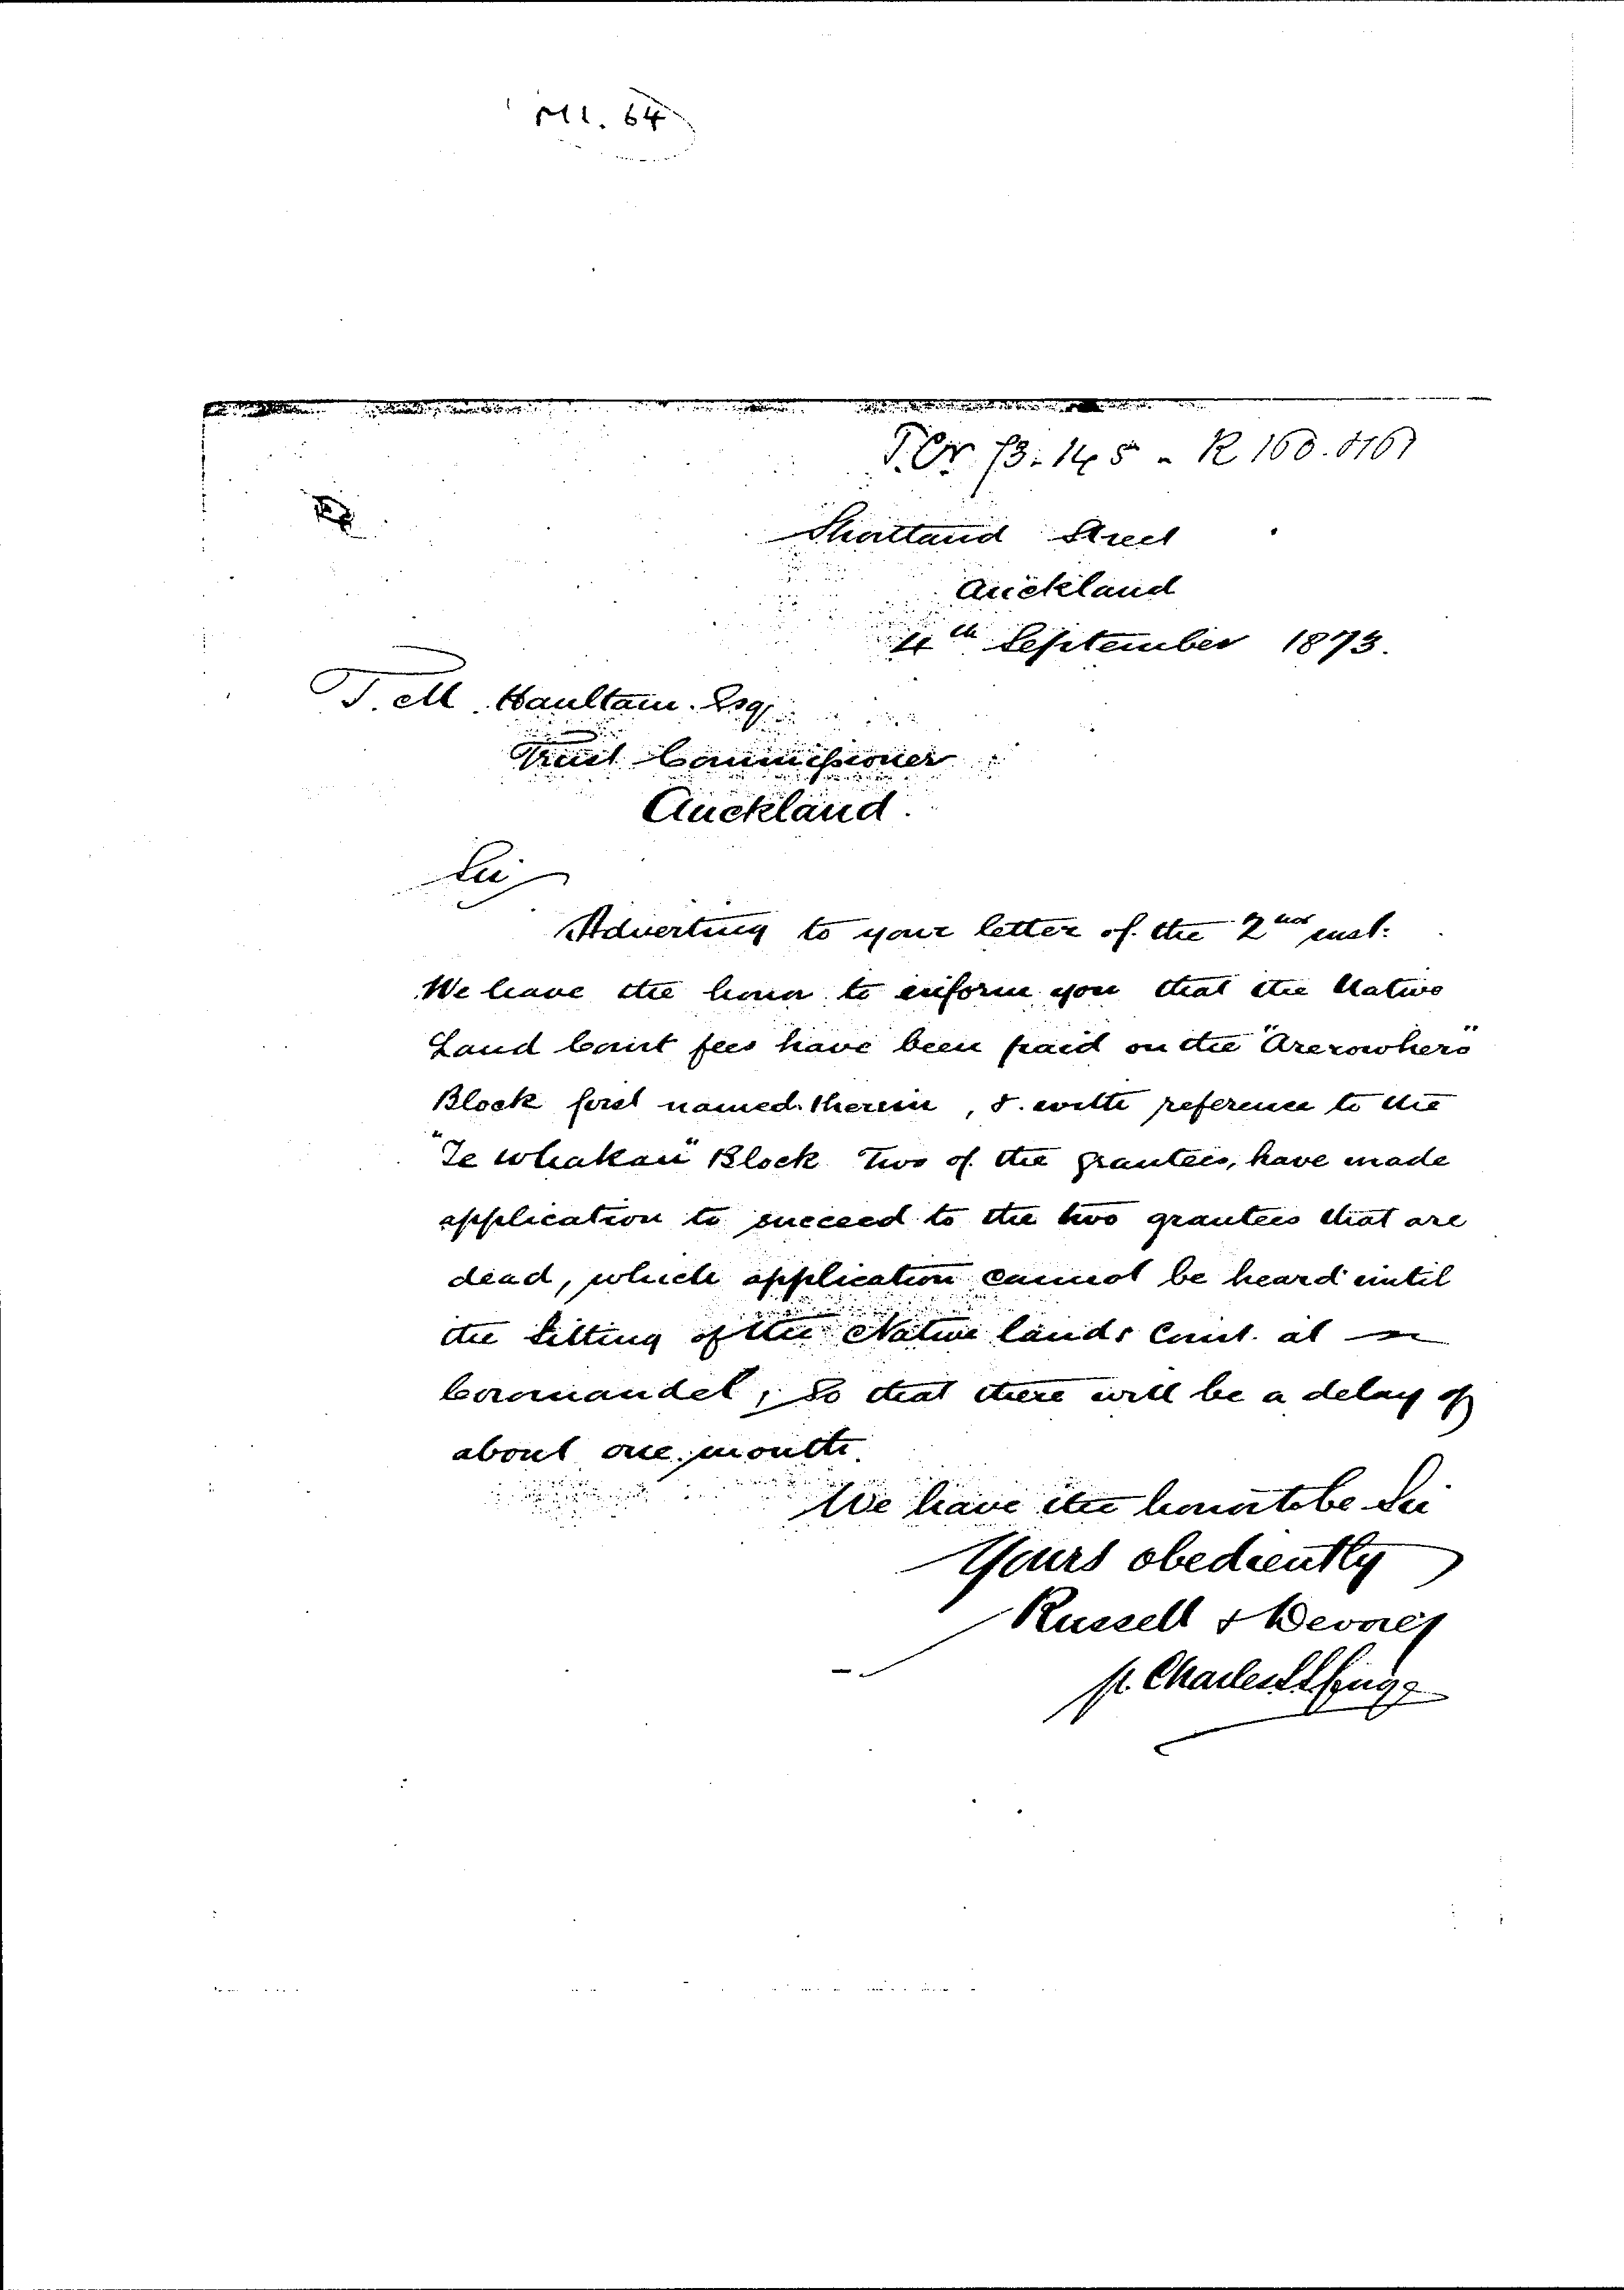 M1. 64
T.Cr 73.145 - R 160.
Shortland Street
Auckland
4th September 1873.
T. M. Haultain. Esq
Trust Commissioner
Auckland.
Sir
Adverting to your letter of the 2nd inst:
We have the honor to inform you that the Native
Land Court fees have been paid on the "Arerowhero"
Block first named therein, & with reference to the
"Te Whakau" Block Two of the grantees, have made
application to succeed to the two grantees that are
dead, which application cannot be heard until
the Sitting of the Native lands Court. at
Coromandel, So that there will be a delay of
about one month.
We have the honor to be Sir
Yours obediently
Russell & Devore
p. Charles